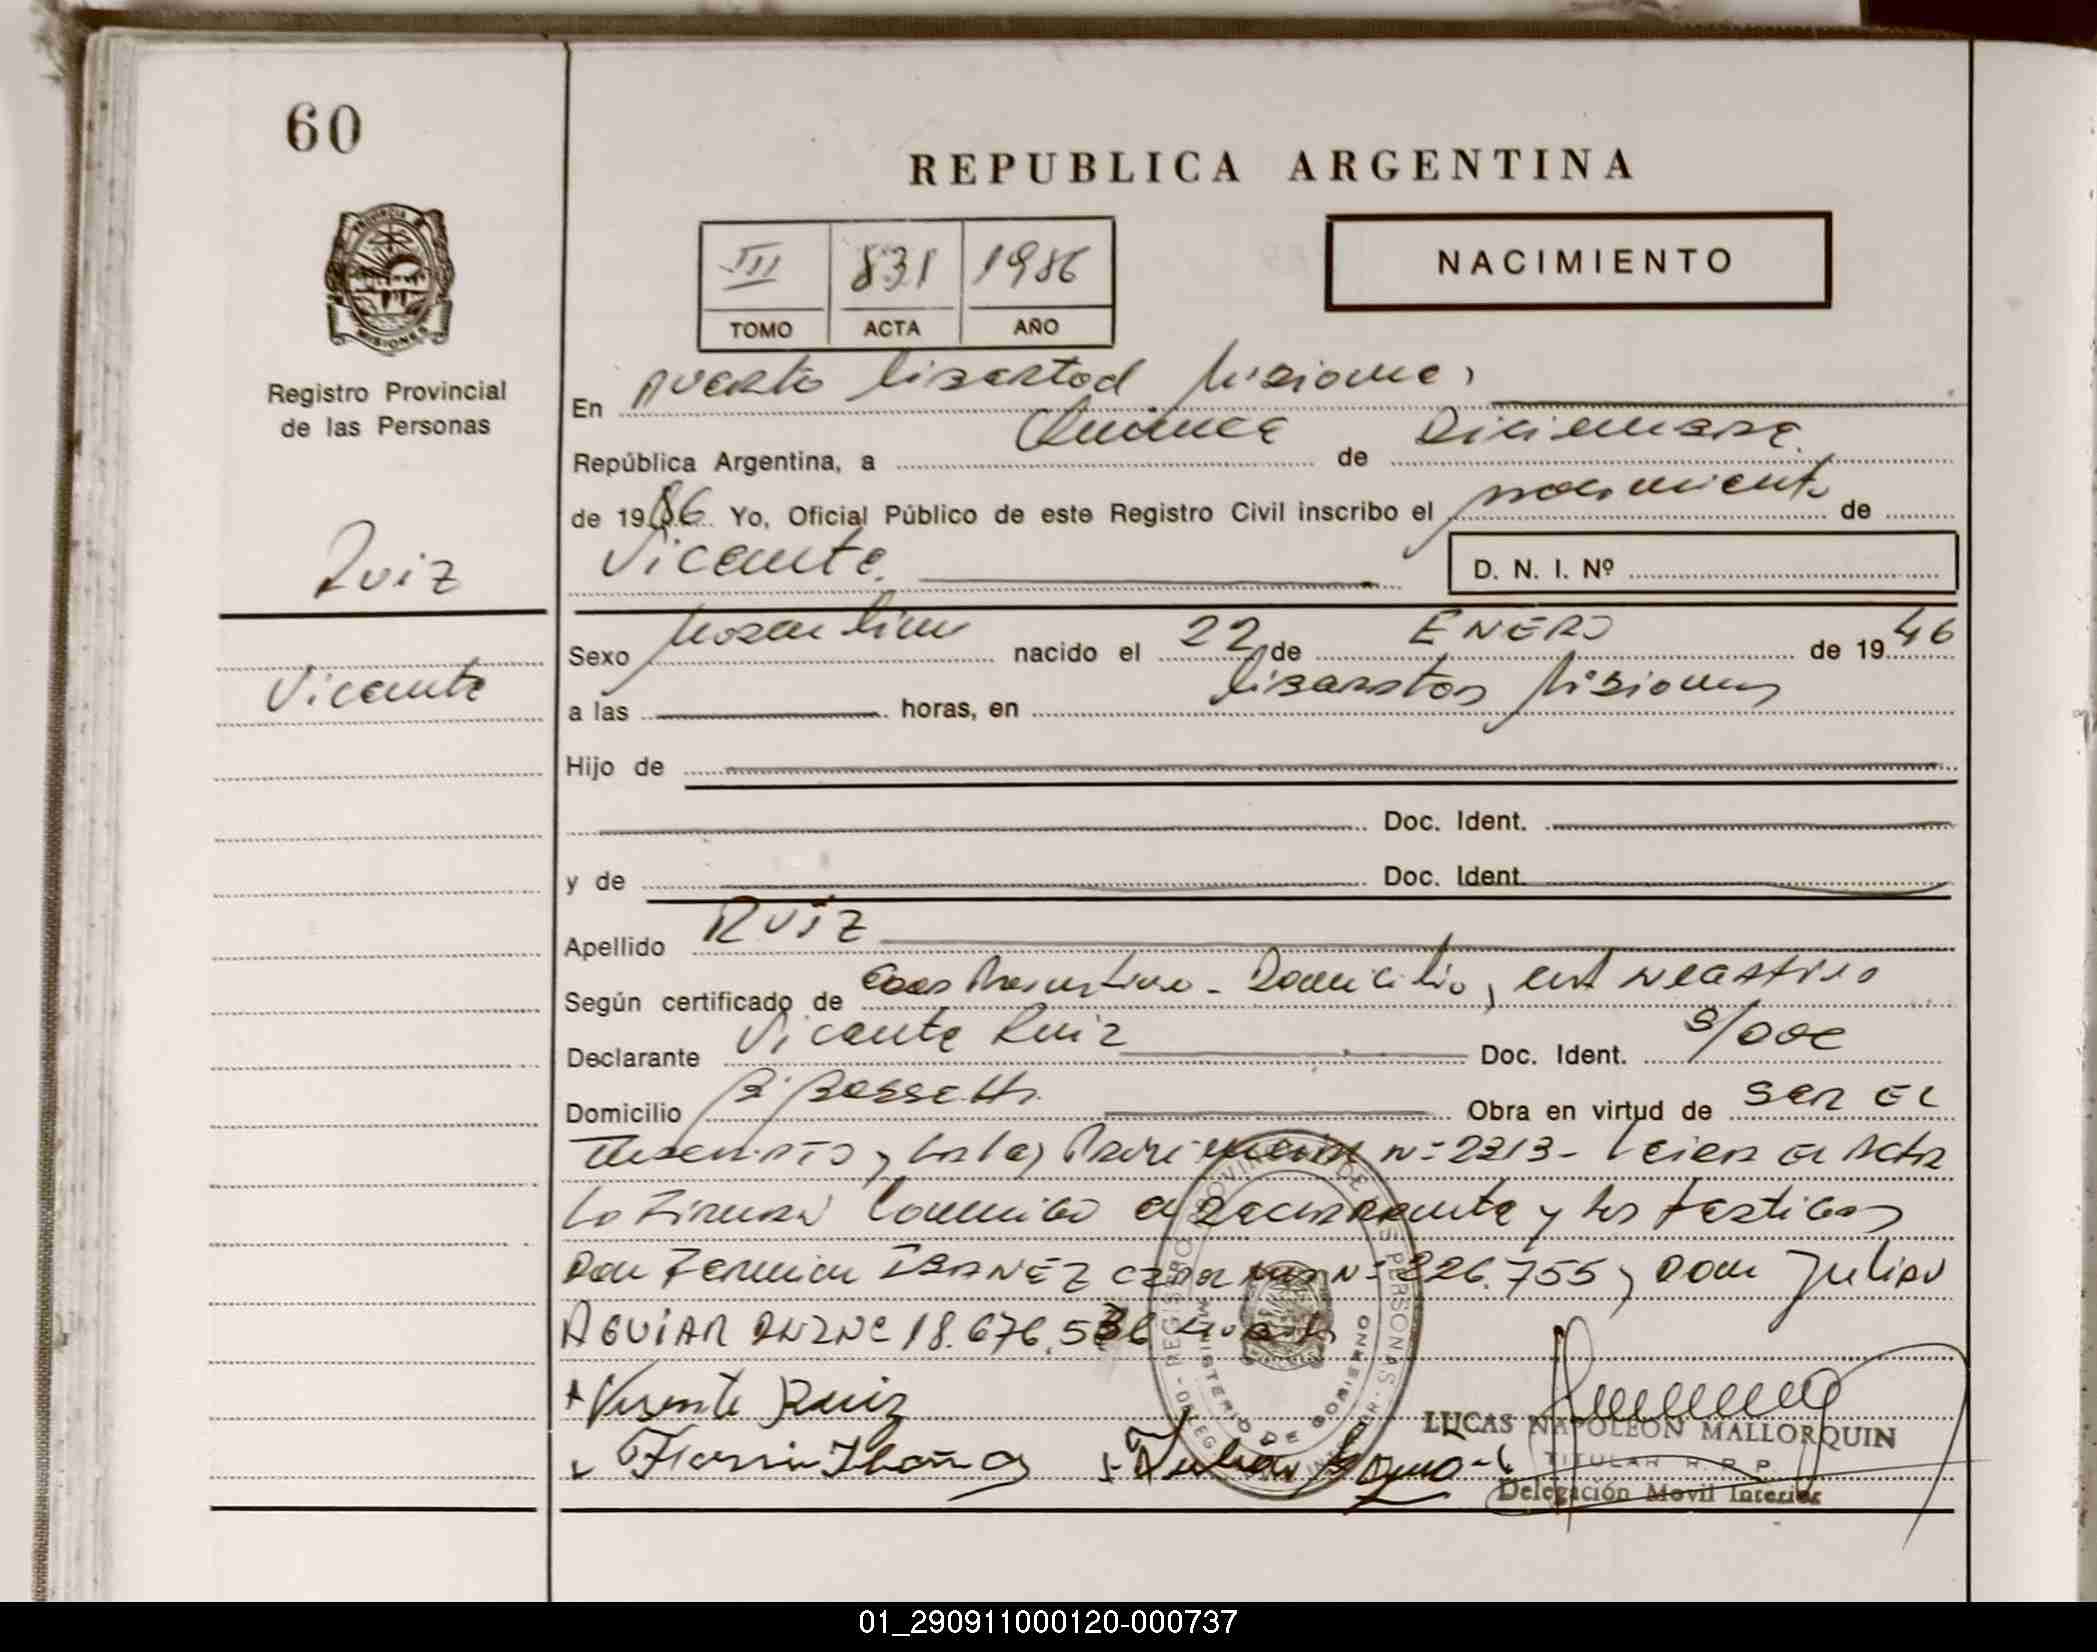 60
REPUBLICA ARGENTINA
PROVINCIA DE MISIONES
III 831 1986
TOMO ACTA AÑO
NACIMIENTO
Registro Provincial
de las Personas
Ruiz
Vicente
En Puerto Libertad Misiones
República Argentina, a Quince de Diciembre
de 1986 Yo, Oficial Público de este Registro Civil inscribo el nacimiento de
Vicente D. N. I. Nº
Sexo Masculino nacido el 22 de ENERO de 1946
a las horas, en Libertad Misiones
Hijo de
Doc. Ident.
y de Doc. Ident.
Apellido RUIZ
Según certificado de Domicilio,
Declarante Vicente Ruiz Doc. Ident. S/Doc
Domicilio B. Bossetti Obra en virtud de SER EL
Inscripto, nº 2313 - Leida El Acta
La Firman Conmigo el Declarante y los testigos
Don Fermin IBANEZ nº 226.755, Don Julian
AGUIAR DNI Nº 18.676.536
Visente Ruiz
Fermin Ibañez Julián
REGISTRO PROVINCIAL DE LAS PERSONAS
MINISTERIO DE GOBIERNO
LUCAS NAPOLEON MALLORQUIN
TITULAR R. P. P.
Delegación Movil Interior
01_290911000120-000737